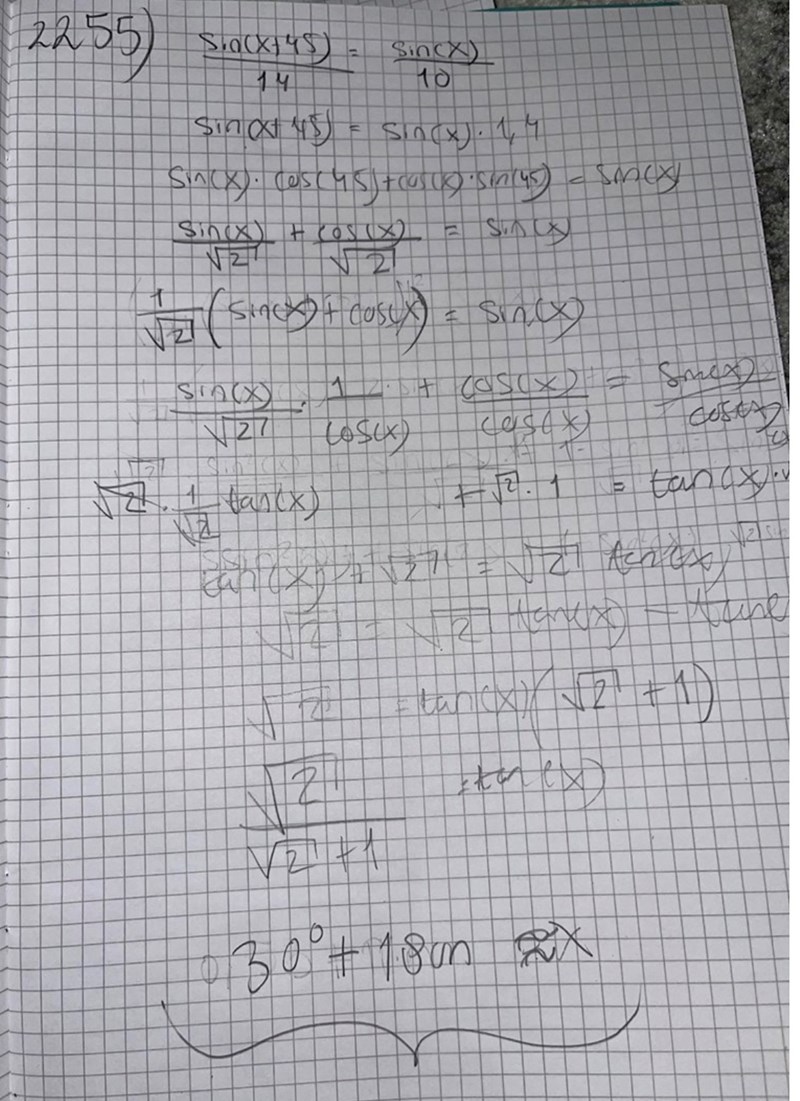 2255) sin(x+45)/14 = sin(x)/10
sin(x+45) = sin(x)·1,4
sin(x)·cos(45)+cos(x)·sin(45) = sin(x)
sin(x)/√2 + cos(x)/√2 = sin(x)
1/√2 (sin(x)+cos(x)) = sin(x)
sin(x)/√2 · 1/cos(x) + cos(x)/cos(x) = sin(x)/cos(x)
√2 · 1/√2 tan(x) + √2 · 1 = tan(x) ·
tan(x) + √2 = √2 tan(x)
√2 = √2 tan(x) −
√2 = tan(x)(√2 + 1)
√2/(√2 + 1) = tan(x)
30° + 180n x